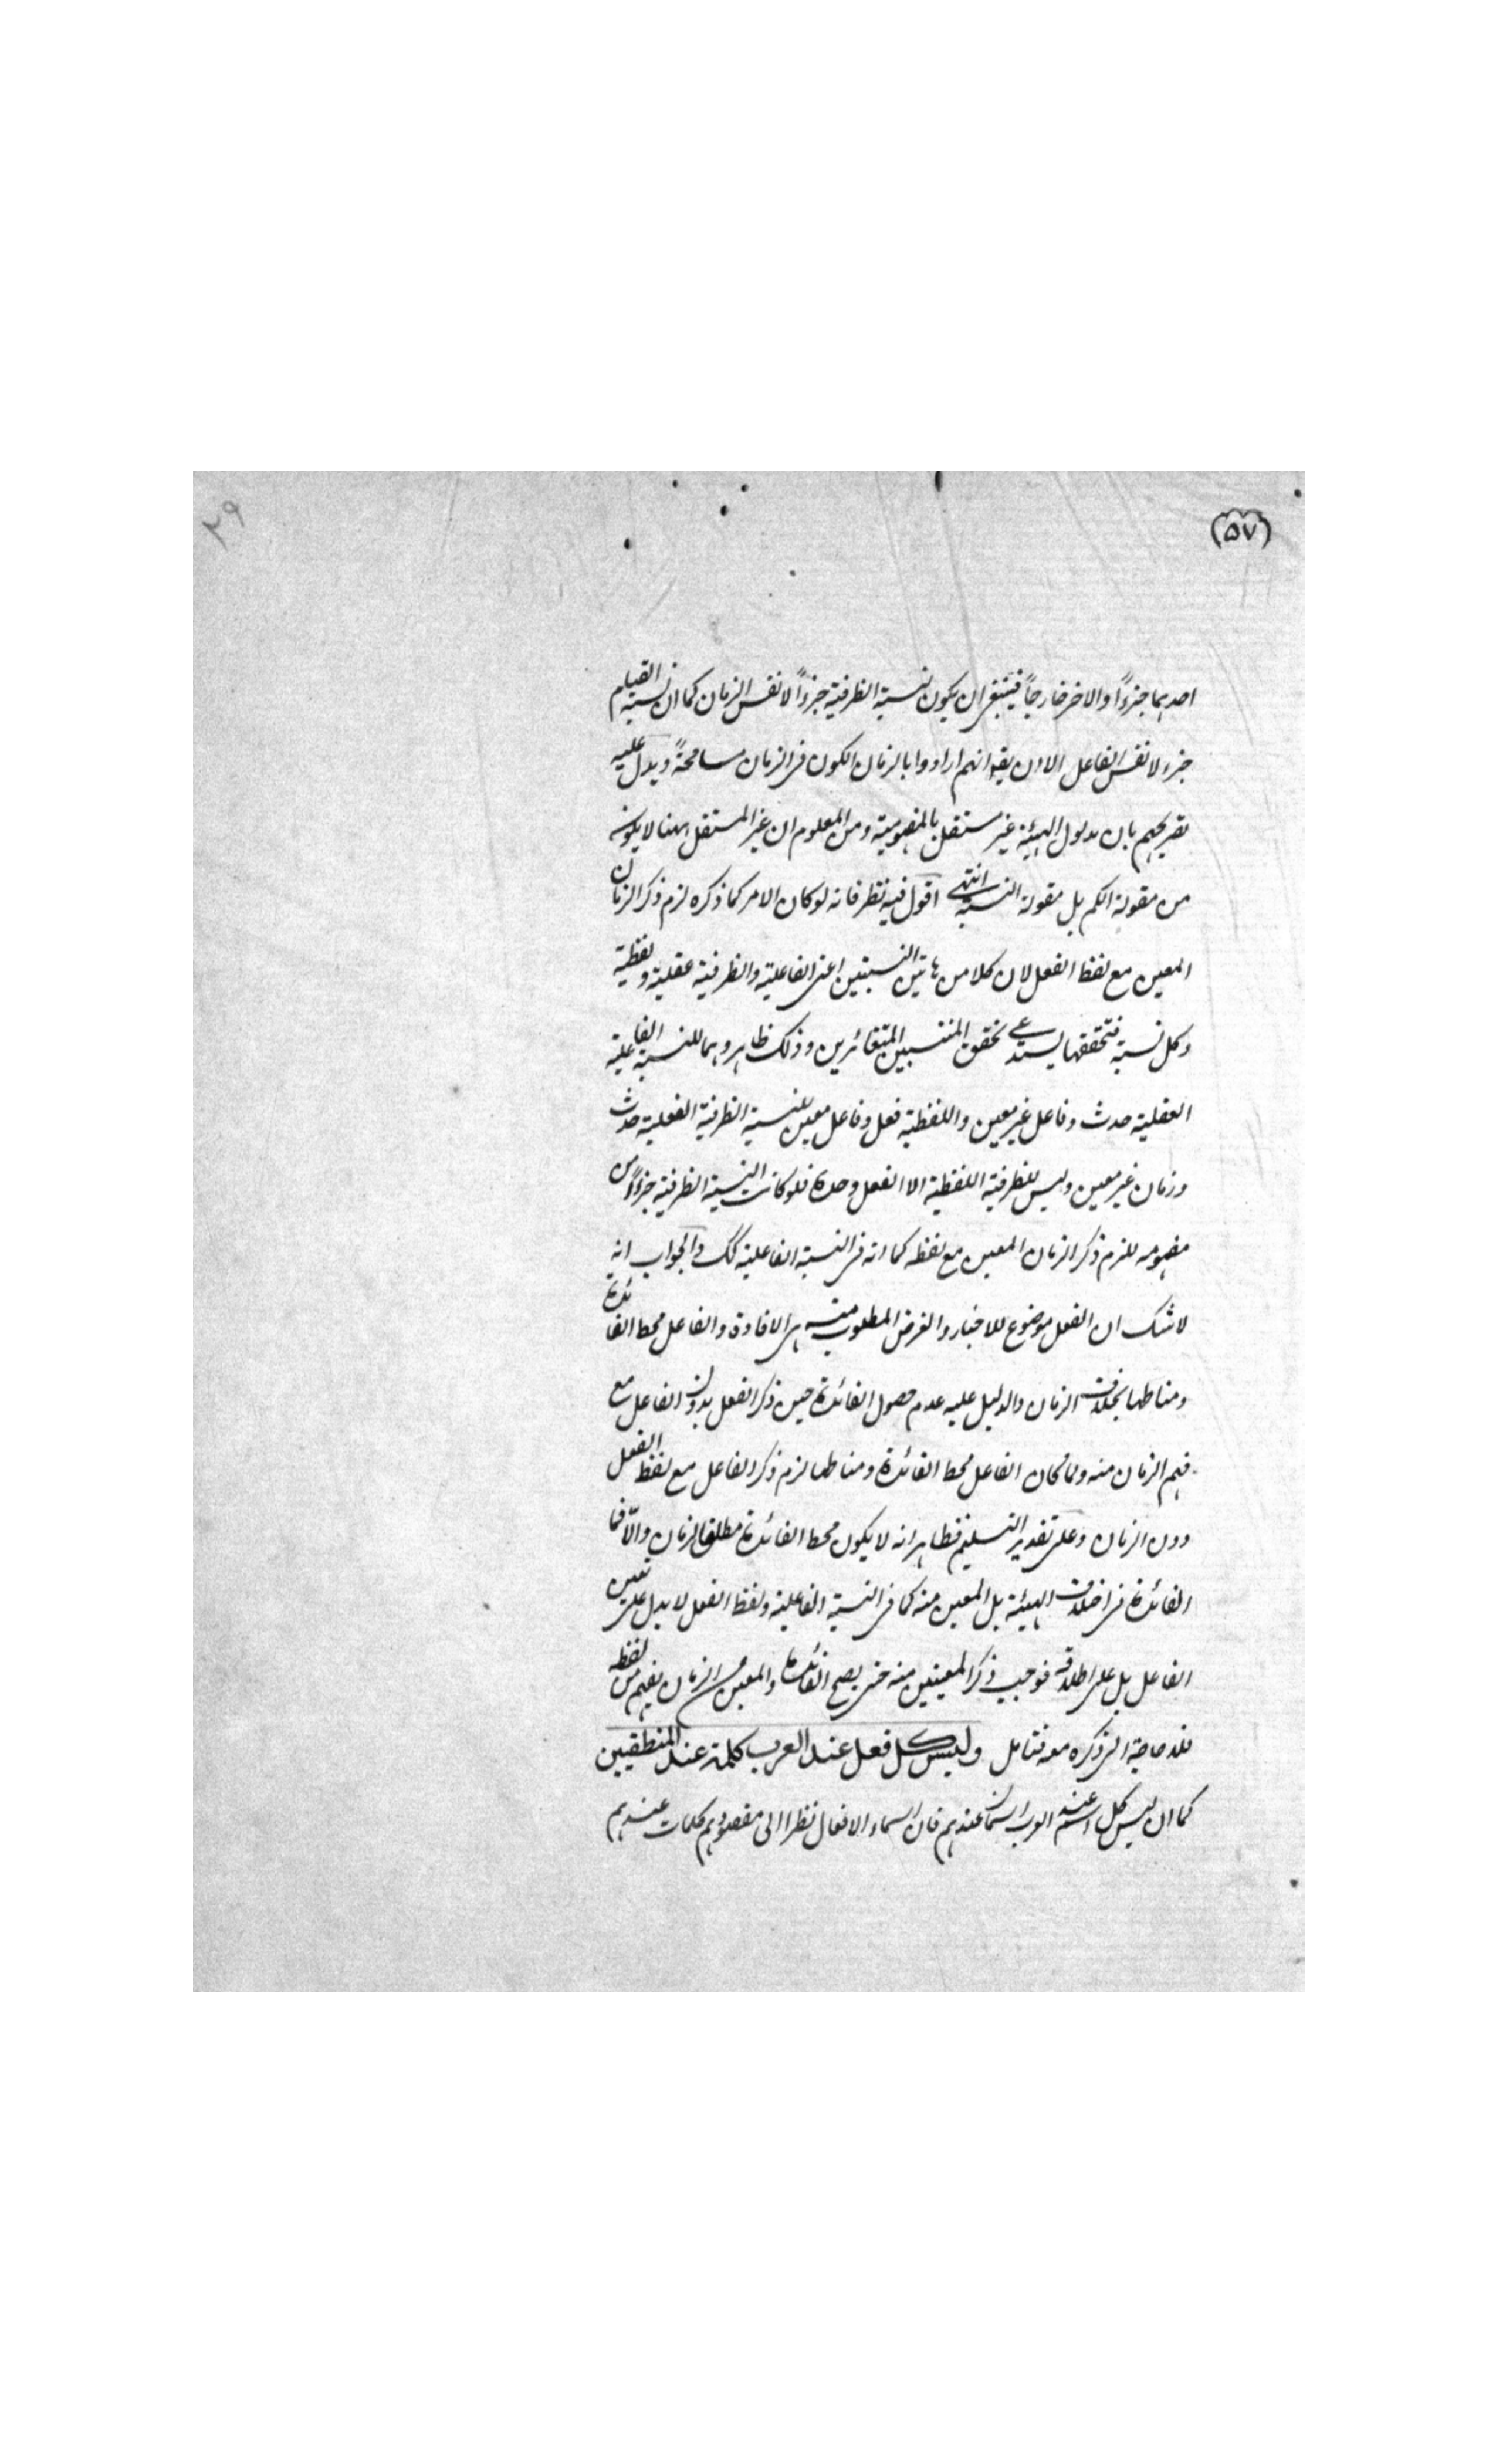 (٥٧)
٢٩
احدهما جزءاً والاخر خارجاً فينبغى ان يكون نسبة الظرفية جزءاً لا نفس الزمان كما ان نسبة القيام
جزء لا نفس الفاعل الا ان يقو انهم ارادوا بالزمان الكون فى الزمان مسامحةً ويدل عليه
تصريحهم بان مدلول الهيئة غير مستقل بالمفهومية ومن المعلوم ان غير المستقل ههنا لا يكون
من مقولة الكم بل مقولة النسبة انتهى اقول فيه نظر فانه لو كان الامر كما ذكره لزم ذكر الزمان
المعين مع لفظ الفعل لان كلا من هاتين النسبتين اعنى الفاعلية والظرفية عقلية ولفظية
وكل نسبة فتحققها يستدعى تحقق المنتسبين المتغائرين وذلك ظاهر وهما للنسبة الفاعلية
العقلية حدث وفاعل غير معين واللفظية فعل وفاعل معين للنسبة الظرفية العقلية حدث
وزمان غير معين وليس للظرفية اللفظية الا الفعل وحدة فلو كانت النسبة الظرفية جزءاً من
مفهومه للزم ذكر الزمان المعين مع لفظه كما انه فى النسبة الفاعلية كك والجواب انه
لا شك ان الفعل موضوع للاخبار والغرض المطلوب منه هى الافادة والفاعل محط الفائدة
ومناطها بخلاف الزمان والدليل عليه عدم حصول الفائدة حين ذكر الفعل بدون الفاعل مع
فهم الزمان منه ولما كان الفاعل محط الفائدة ومناطها لزم ذكر الفاعل مع لفظ الفعل
دون الزمان وعلى تقدير التسليم فظاهر انه لا يكون محط الفائدة مطلق الزمان والّا فما
الفائدة فى اختلاف الهيئة بل المعين منه كما فى النسبة الفاعلية ولفظ الفعل لا يدل على تعين
الفاعل بل على اطلاقه فوجب ذكر المعينين منه حتى يصح الفائدة والمعين من الزمان يفهم من لفظه
فلا حاجة الى ذكره معه فتامل وليس كل فعل عند العرب كلمة عند المنطقيين
كما ان ليس كل اسم عند العرب اسما عندهم فان اسماء الافعال نظرا الى مقصودهم كلمات عندهم